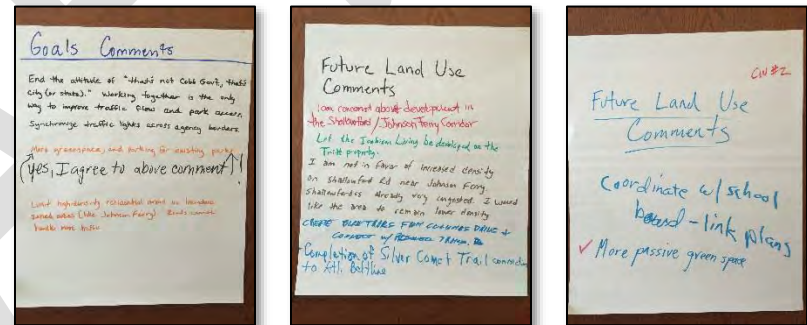 Goals Comments
End the attitude of "that's not Cobb Gov't, that's
City (or state)." Working together is the only
way to improve traffic flow and park access.
Synchronize traffic lights across agency borders
More greenspace, and parking for existing parks
(yes, I agree to above comment)!
Limit high-density residential areas in
zoned areas (like Johnson Ferry). Roads cannot
handle more traffic
Future Land Use
Comments
I am concerned about development in
the Shallowford / Johnson Ferry Corridor
Let the Living be developed on the
property.
I am not in favor of increased density
on Shallowford Rd near Johnson Ferry.
Shallowford is already very congested. I would
like the area to remain lower density
CREATE BIKE TRAILS FROM COLUMNS DRIVE &
CONNECT W/
Completion of Silver Comet Trail connection
to Atl. Beltline
CW #2
Future Land Use
Comments
Coordinate w/ school
board - link plans
✓ More passive green space